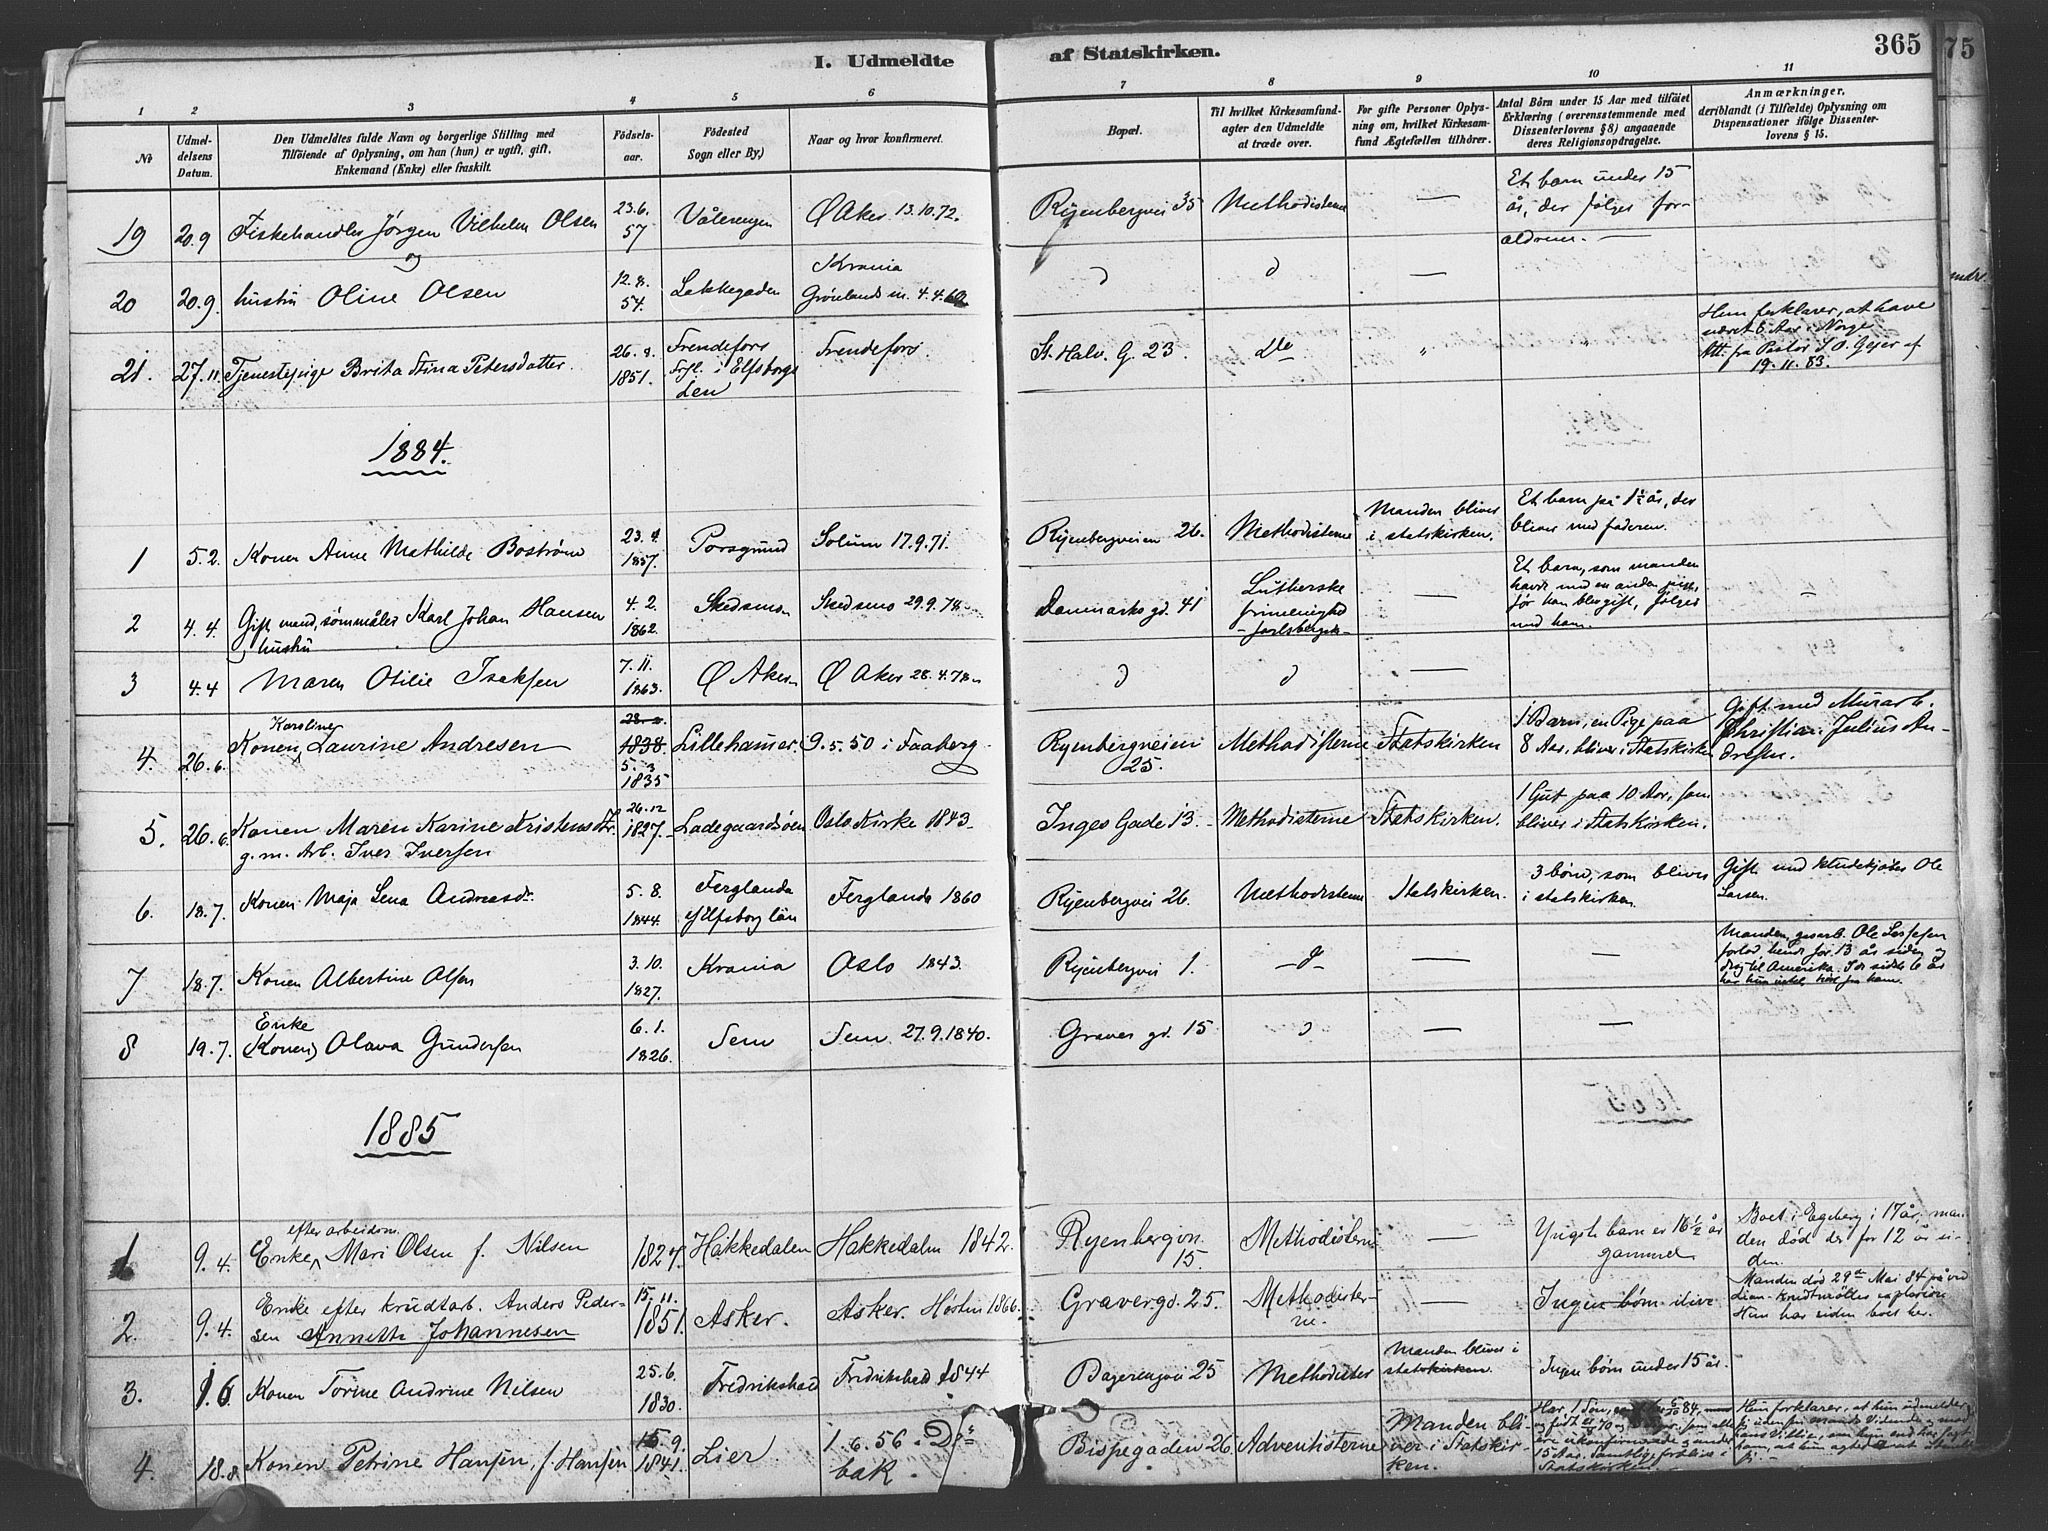 I. Udmeldte af Statskirken. 365 75
1 2 3 4 5 6 7 8 9 10 11
No
Udmeldelsens Datum.
Den Udmeldtes fulde Navn og borgerlige Stilling med
Tilføiende af Oplysning, om han (hun) er ugift, gift,
Enkemand (Enke) eller fraskilt.
Fødselsaar.
Fødested
Sogn eller By,)
Naar og hvor konfirmeret.
Bopæl.
Til hvilket Kirkesamfund-
agter den Udmeldte
at træde over.
For gifte Personer Oplys-
ning om, hvilket Kirkesam-
fund Ægtefællen tilhører.
Antal Börn under 15 Aar med tilföiet
Erklæring (overensstemmende med
Dissenterlovens § 8) angaaende
deres Religionsopdragelse.
Anmærkninger,
deriblandt (i Tilfælde) Oplysning om
Dispensationer ifølge Dissenter-
lovens § 15.
19 20.9 Fiskehandler Jørgen Vilhelm Olsen 23.6. 57 Vålerengen Ø Aker 13.10.72. Ryenbergvei 35 Methodisterne — Et barn under 15
år, der følger for-
ældrene. —
og
20 20.9. hustru Oline Olsen 12.8. 54. Lakkegaden Krania
Grønlands m. 4.4. d d —
21. 27.11 Tjenestepige Brita Stina Petersdatter. 26.8. 1851. Frendefors
Frgl. i Elfsborgs
Len Frendefors. St. Halv. G. 23. do " " Hun forklarer, at have
været 6 Aar i Norge
Att. fra Pastor S. O. Gejer af
19.11.83.
1884.
1 5.2. Konen Anne Mathilde Bostrøm 23.4. 1857. Porsgrund Solum 17.9.71. Ryenbergveien 26. Methodisterne Manden bliver
i statskirken. Et barn på 1½ år, der
bliver med faderen.
2 4.4. Gift mand, sømmåler Karl Johan Hansen 4.2. 1862. Skedsmo Skedsmo 29.9.78 Danmarks gd. 41 Lutherske
frimenighed
Jarlsbergsk — Et barn, som manden
havde med en anden pige,
før han blev gift, følger
med ham.
hustru
3 4.4 Maren Otilie Isaksen 7.11. 1863. Ø Aker Ø Aker 28.4.78 d d —
4. 26.6. Konen Karoline Laurine Andresen 28. 1838. 5.3 1835 Lillehamer. 9.5.50 i Faaberg. Ryenbergveien
25. Methodisterne Statskirken 1 Barn, en Pige paa
8 Aar, bliver i Statskirken Gift med Murarb.
Christian Julius An-
dresen.
5. 26.6. Konen Maren Karine Kristensdtr.
g. m. Arb. Iver Iversen 26.12 1827. Ladegaardsøen Oslo Kirke 1843. Inges Gade 13. Methodisterne Statskirken. 1 Gut paa 10 Aar, som
bliver i Statskirken.
6. 18.7. Konen Maja Lena Andreasdr. 5.8. 1844. Ferglanda
Elfsborg län Ferglanda 1860 Ryenbergvei 26. Methodisterne Statskirken. 3 børn, som bliver
i statskirken. Gift med kludekjøber Ole
Larsen.
7 18.7. Konen Albertine Olsen 3.10. 1827. Krania Oslo 1843. Ryenbergvei 1. — d — — — Manden, Ole
forlod hende for 13 år siden og
drog til Amerika. I de sidste 6 år
har hun intet hørt fra ham.
8 19.7. Enke (Konen) Olava Gundersen 6.1. 1826. Sem Sem 27.9.1840. Graver gd. 15 d — —
1885
1 9.4. Enke efter arbeidsm. Mari Olsen f. Nilsen 1824. Hakkedalen Hakkedalen 1842. Ryenbergvn.
15. Methodisterne — Yngste barn er 16½ år
gammel Boet i Egeberg i 17 år, man-
den død der for 12 år si-
den.
2. 9.4. Enke efter krudtarb. Anders Peder-
sen Annette Johannesen 15.11. 1851. Asker. Asker. Høsten 1866. Gravergd. 25. Methodister-
ne. — Ingen børn ilive Manden død 29de Mai 84 på ved
Lian krudtmølles explosion
Hun har siden boet her.
3. 1.6 Konen Torine Andrine Nilsen 25.6. 1830. Fredrikshald Fredrikshald 1844 Bagerengvei 25 Methodister Manden bliver i
statskirken Ingen børn under 15 år.
4. 18.8 Konen Petrine Hansen, f. Hansen 15.9. 1841. Lier 1.6.56.
bak Bispegaden 26. Adventisterne Manden bli-
ver i Statskir-
ken. Har 1 Søn,
15 Aar. Samtlige forblive i
Statskirken. Hun forklarer, at hun udmelder
sig uden sin mands Vidende og mod
hans Villie,